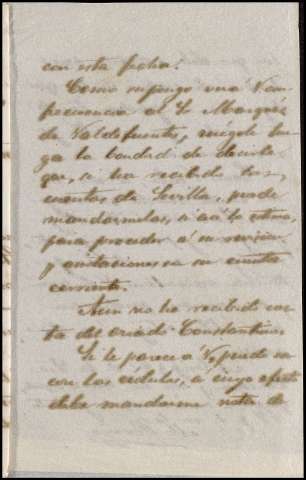 con esta fecha.
Como supongo verá V. con
frecuencia al Sr Marqués
de Valdefuentes, ruégole ten
ga la bondad de decirle
que, si ha recibido las
cuentas de Sevilla, puede
mandármelas, si así lo estima,
para proceder á su revisión
y anotaciones en su cuenta
corriente.
Aun no he recibido car
ta del criado Constantino.
Si le parece á V. puedo sa
car las cédulas, á cuyo efecto
debe mandarme nota de